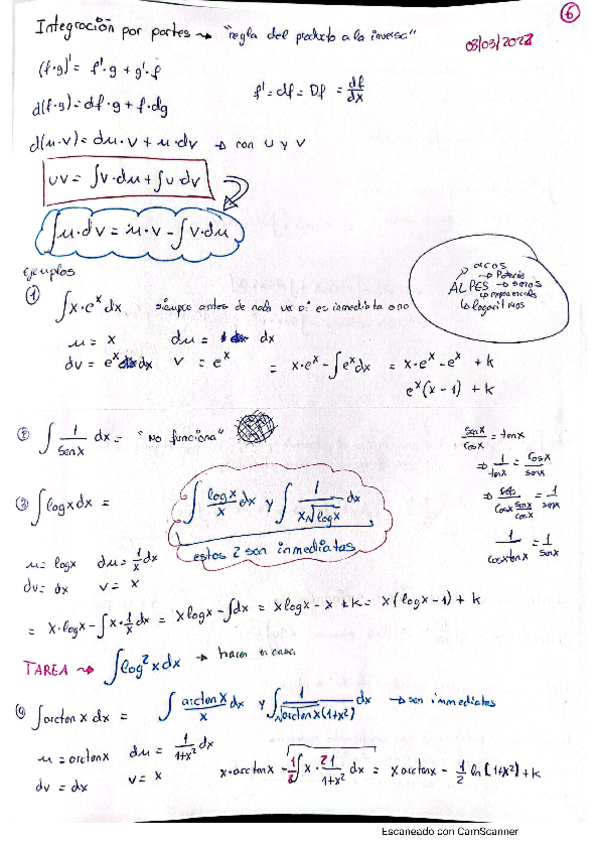 6
Integración por partes → "regla del producto a la inversa"
08/03/2022
(f·g)' = f'·g + g'·f
f' = df = Df = df/dx
d(f·g) = df·g + f·dg
d(u·v) = du·v + u·dv → con U y V
uv = ∫v·du + ∫u·dv
∫u·dv = u·v - ∫v·du
Ejemplos
arcos
→ Potencias
ALPES → senos
→ exponenciales
↳ logaritmos
① ∫x·eˣdx, siempre antes de nada ver si es inmediata o no
u = x du = dx
dv = eˣdx v = eˣ = x·eˣ - ∫eˣdx = x·eˣ - eˣ + k
eˣ(x - 1) + k
② ∫ 1/senx dx = "No funciona"
senx/cosx = tanx
⇒ 1/tanx = cosx/senx
⇒ senx/(cosx senx/cosx) = 1/senx
1/(cosx tanx) = 1/senx
③ ∫logxdx =
∫ logx/x dx y ∫ 1/(x√logx) dx
estas 2 son inmediatas
u = logx du = 1/x dx
dv = dx v = x
= x·logx - ∫x·1/x dx = xlogx - ∫dx = xlogx - x + k = x(logx - 1) + k
TAREA → ∫log²xdx → hacer en casa
④ ∫arctanxdx = ∫ arctanx/x dx y ∫ 1/(√arctanx(1+x²)) dx → son inmediatas
u = arctanx du = 1/(1+x²) dx
dv = dx v = x
x·arctanx - 1/2 ∫x · 21/(1+x²) dx = xarctanx - 1/2 ln(1+x²) + k
Escaneado con CamScanner